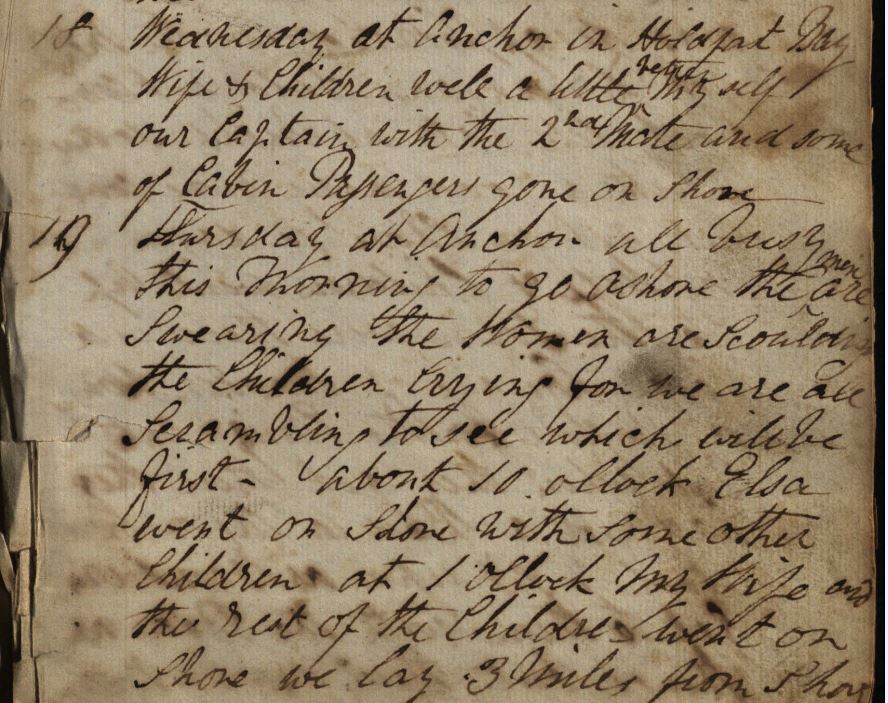 18 Wednesday at Anchor in Holdfast Bay
Wife & Children well a little better My self
our Captain with the 2nd Mate and some
of Cabin Passengers gone on Shore
19 Thursday at Anchor all busy
this Morning to go ashore the men are
Swearing the Women are Scoulding
the Children Crying for we are all
Scrambling to see which will be
first - about 10 oClock Elsa
went on Shore with some other
Children at 1 oClock My Wife and
the rest of the Children went on
Shore we lay 3 Miles from Shore